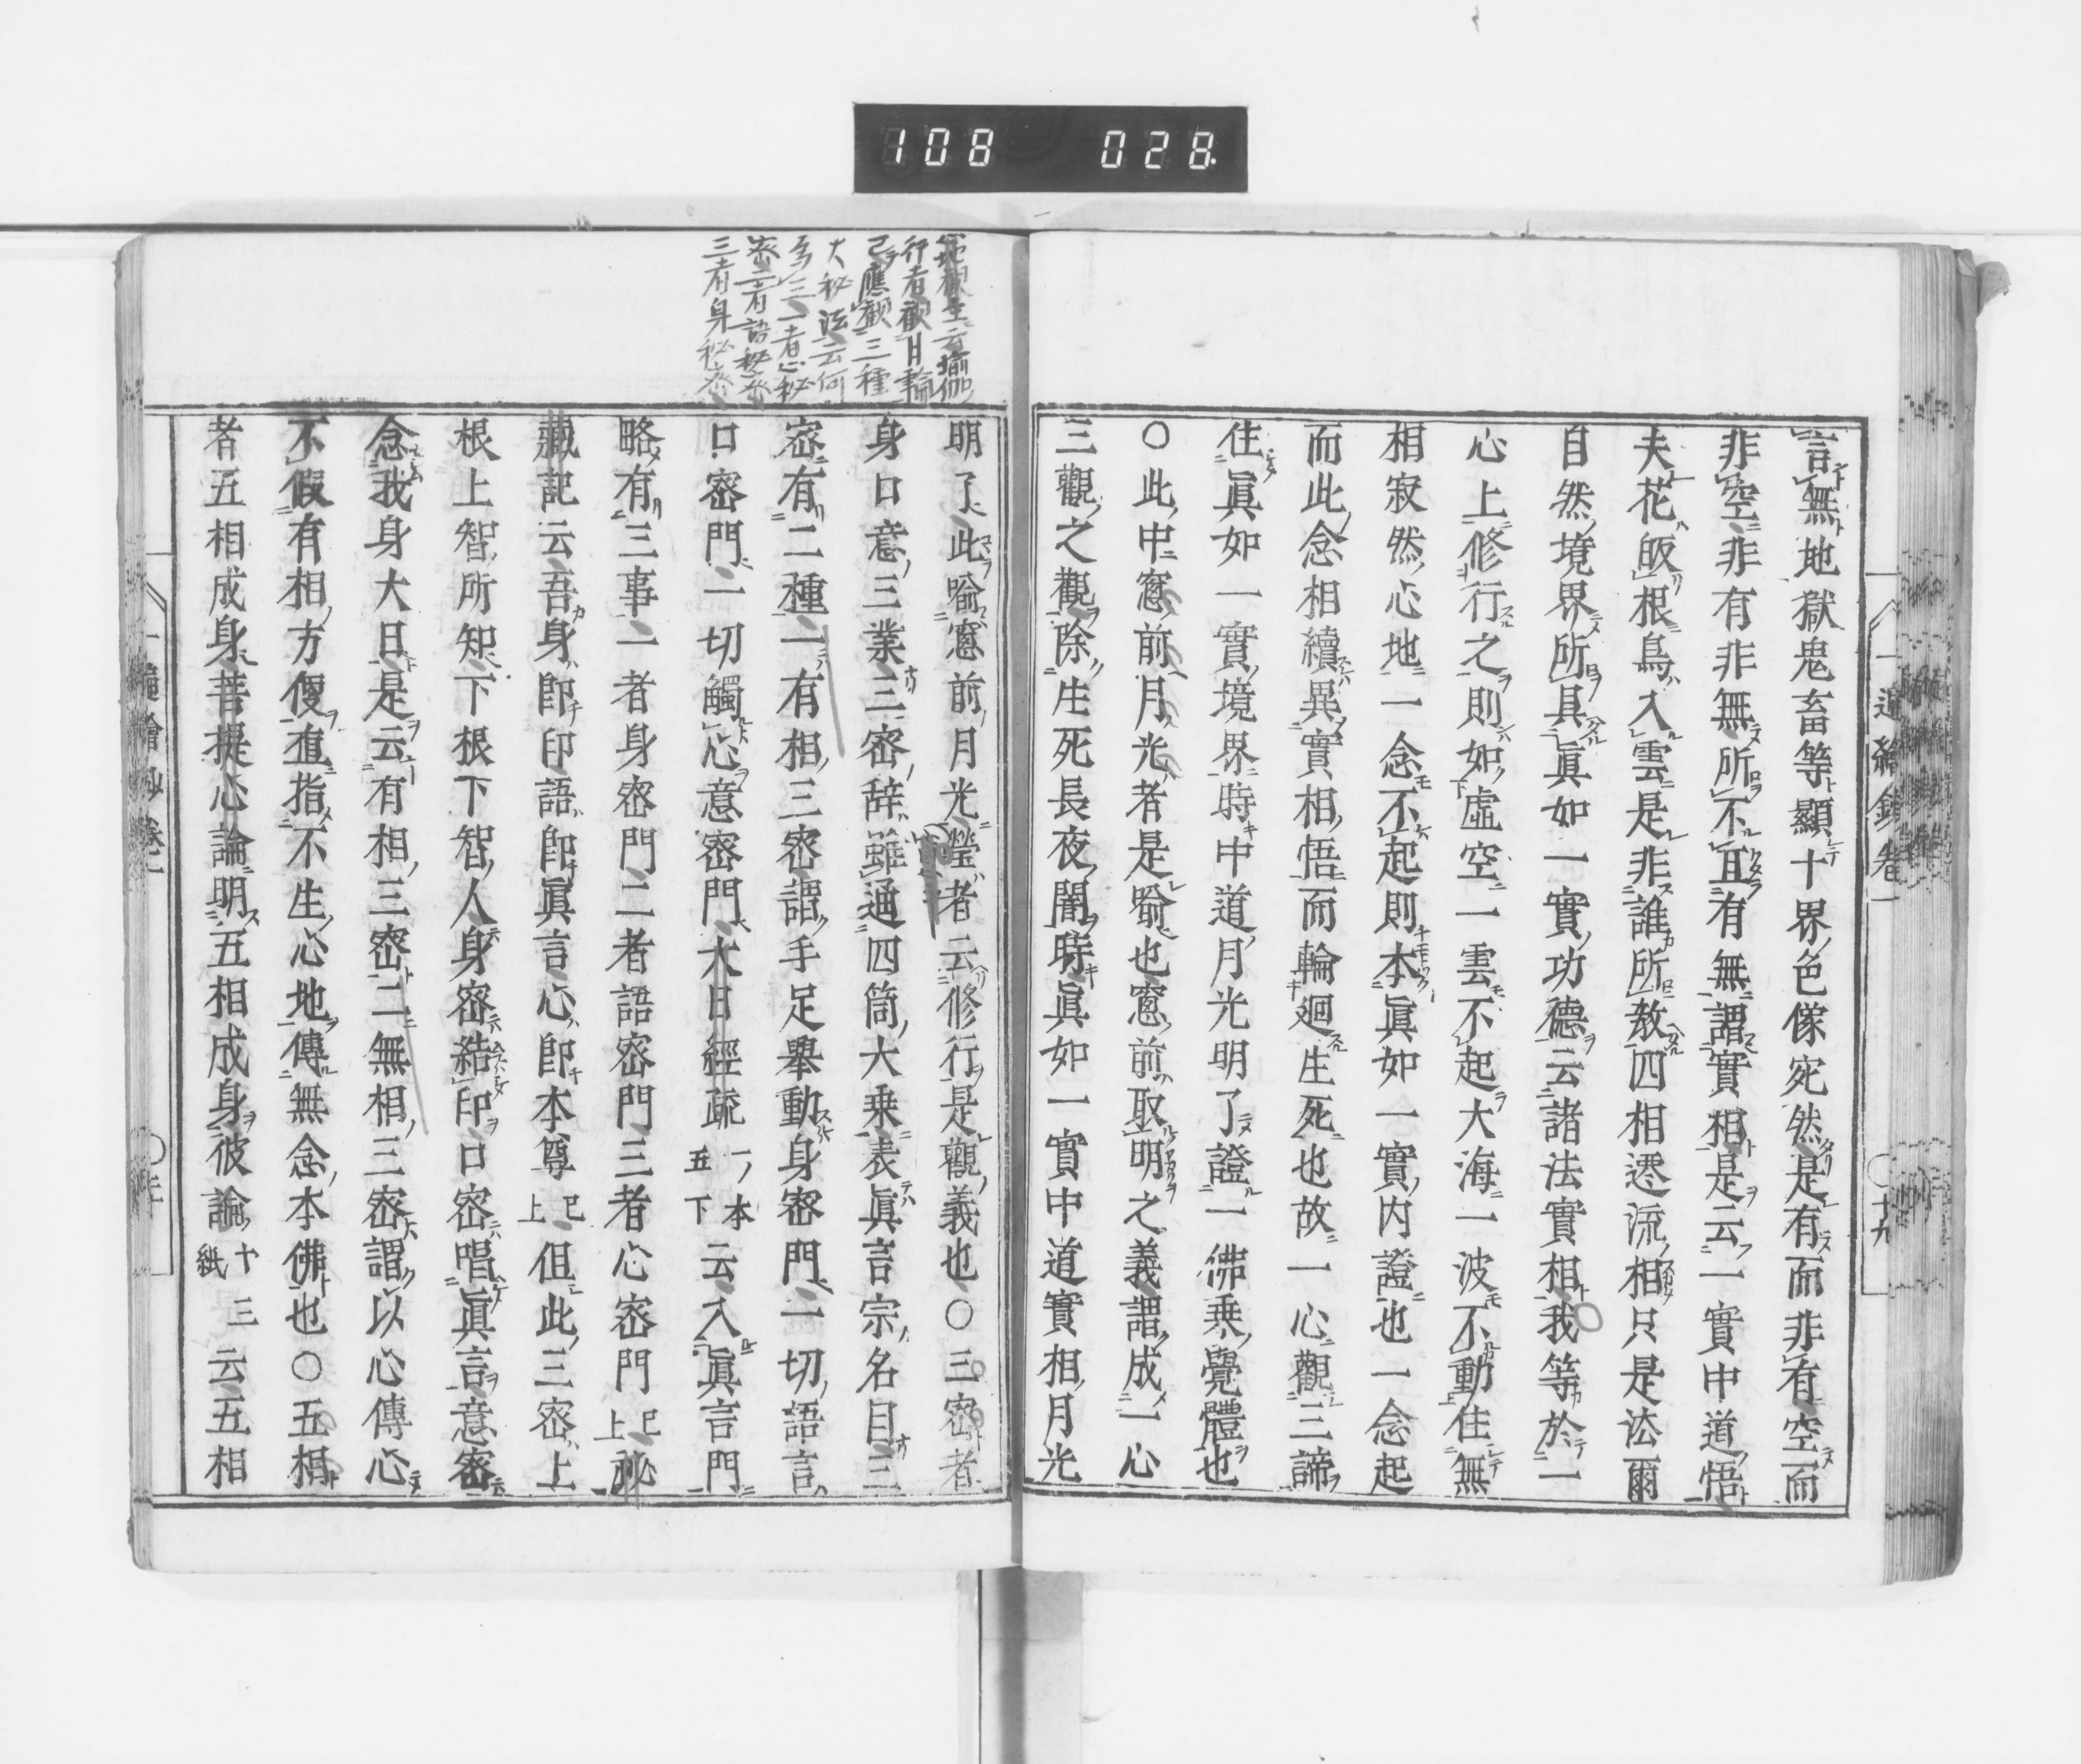 108 028
言無地獄鬼畜等顯十界色像宛然是有而非有空而
非空非有非無所不宜有無謂實相是云一實中道悟
夫花皈根鳥入雲是非誰所敎四相遷流相只是法爾
自然境界所具眞如一實功德云諸法實相我等於一
心上修行之則如虛空一雲不起大海一波不動住無
相寂然心地一念不起則本眞如一實內證也一念起
而此念相續異實相悟而輪廻生死也故一心觀三諦
住眞如一實境界時中道月光明了證一佛乘覺體也
○此中窓前月光者是喩也窓前取明之義謂成一心
三觀之觀除生死長夜闇時眞如一實中道實相月光
十九
行者觀日輪
已應觀三種
大秘法云何
爲三一者心秘
密二者語秘密
三者身秘密
明了此喩窓前月光瑩者云修行是觀義也○三密者
身口意三業三密辭雖通四箇大乘表眞言宗名目三
密有二種一有相三密謂手足擧動身密門一切語言
口密門一切觸心意密門大日經疏一本五下云入眞言門
略有三事一者身密門二者語密門三者心密門已上祕
藏記云吾身卽印語卽眞言心卽本尊已上但此三密上
根上智所知下根下智人身密結印口密唱眞言意密
念我身大日是云有相三密二無相三密謂以心傳心
不假有相方便直指不生心地傳無念本佛也○五相
者五相成身菩提心論明五相成身彼論十三紙云五相